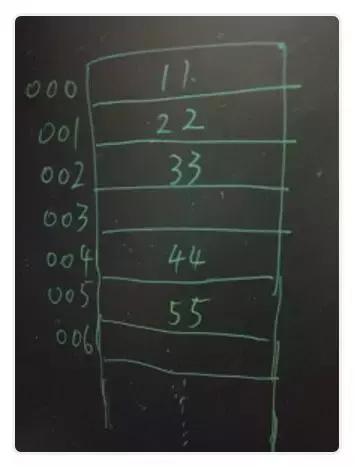 000 11
001 22
002 33
003
004 44
005 55
006